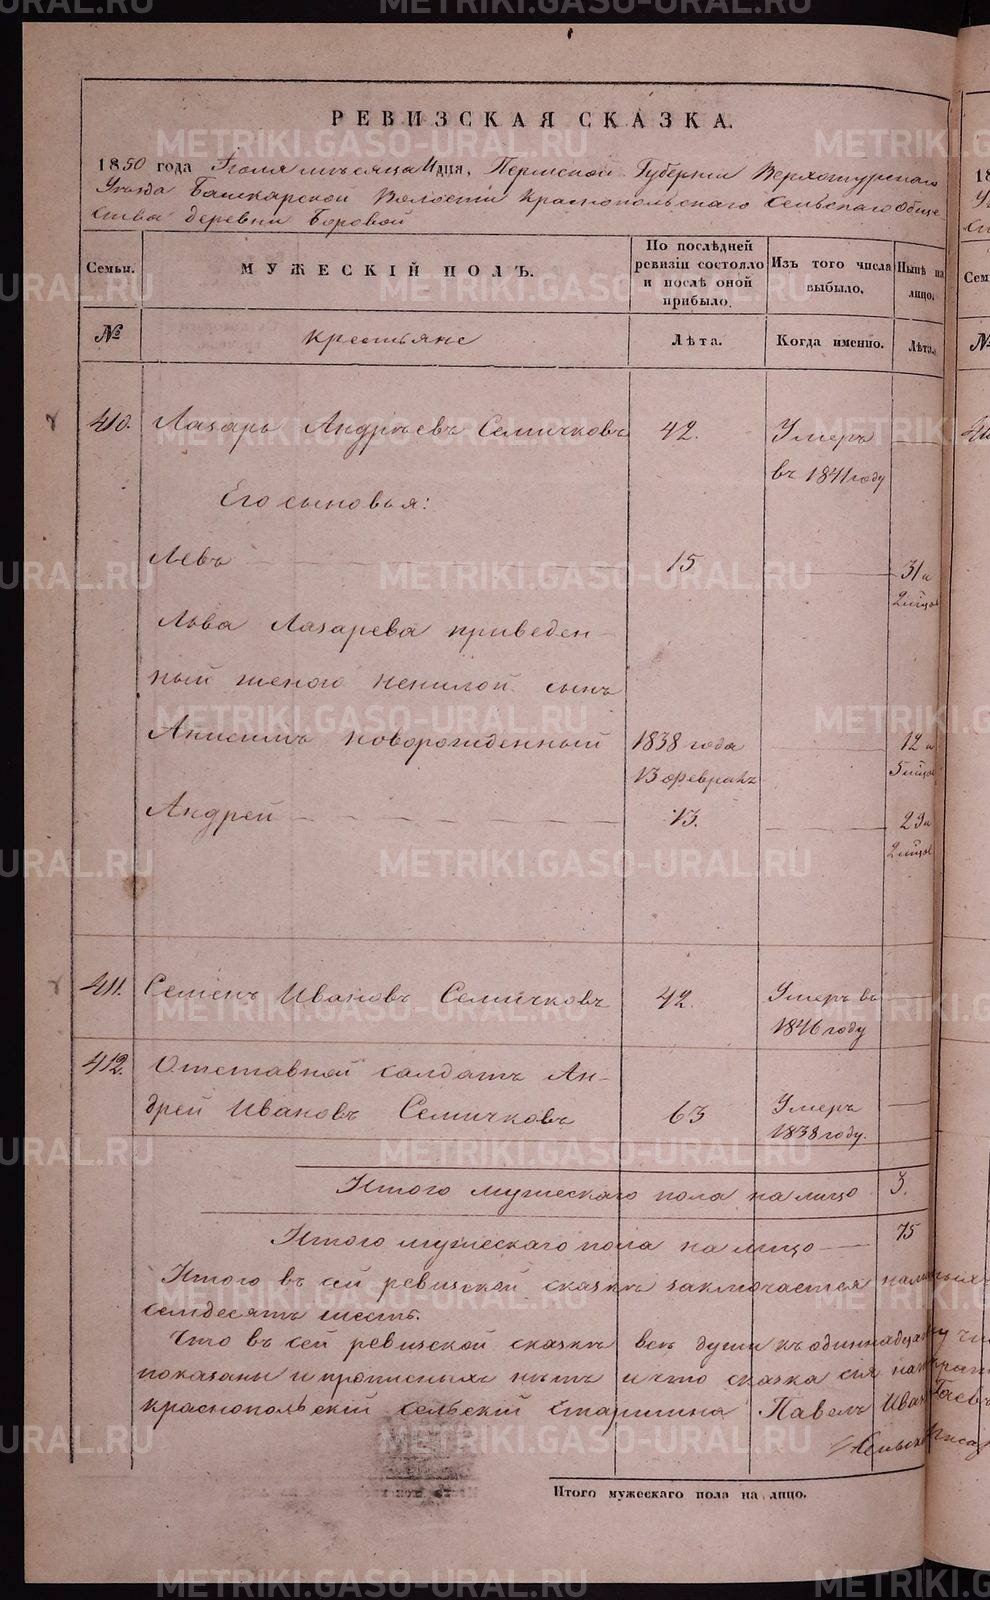 РЕВИЗСКАЯ СКАЗКА.
1850 года Іюля мѣсяца дня, Пермской Губерніи Верхотурскаго
Уѣзда Башкарской Волости Краснопольскаго Сельскаго Обще-
ства деревни Боровой
Семьи. МУЖЕСКІЙ ПОЛЪ. По послѣдней ревизіи состояло и послѣ оной прибыло. Изъ того числа выбыло. Нынѣ на лицо.
№ крестьяне Лѣта. Когда именно. Лѣта.
410. Лазарь Андрѣевъ Семичковъ 42. Умеръ
въ 1841 году
Его сыновья:
Левъ 15 31 и
2 мѣцов
Льва Лазарева приведен-
ный женою Ненилой сынъ
Анисимъ новорожденный 1838 года 12 и
13 февраля 5 мѣцов
Андрей 13. 29 и
2 мѣцов
411. Семенъ Ивановъ Семичковъ 42. Умеръ въ
1846 году
412. Отставной солдатъ Ан-
дрей Ивановъ Семичковъ 63 Умеръ
1838 году.
Итого мужескаго пола на лицо 3.
Итого мужескаго пола на лицо 75
Итого въ сей ревизской сказкѣ заключается
семдесятъ шесть.
Что въ сей ревизской сказкѣ всѣ души къ
показаны и прописныхъ нѣтъ и что сказка сія
Краснопольскій Сельскій Старшина Павелъ
Итого мужескаго пола на лицо.
METRIKI.GASO-URAL.RU